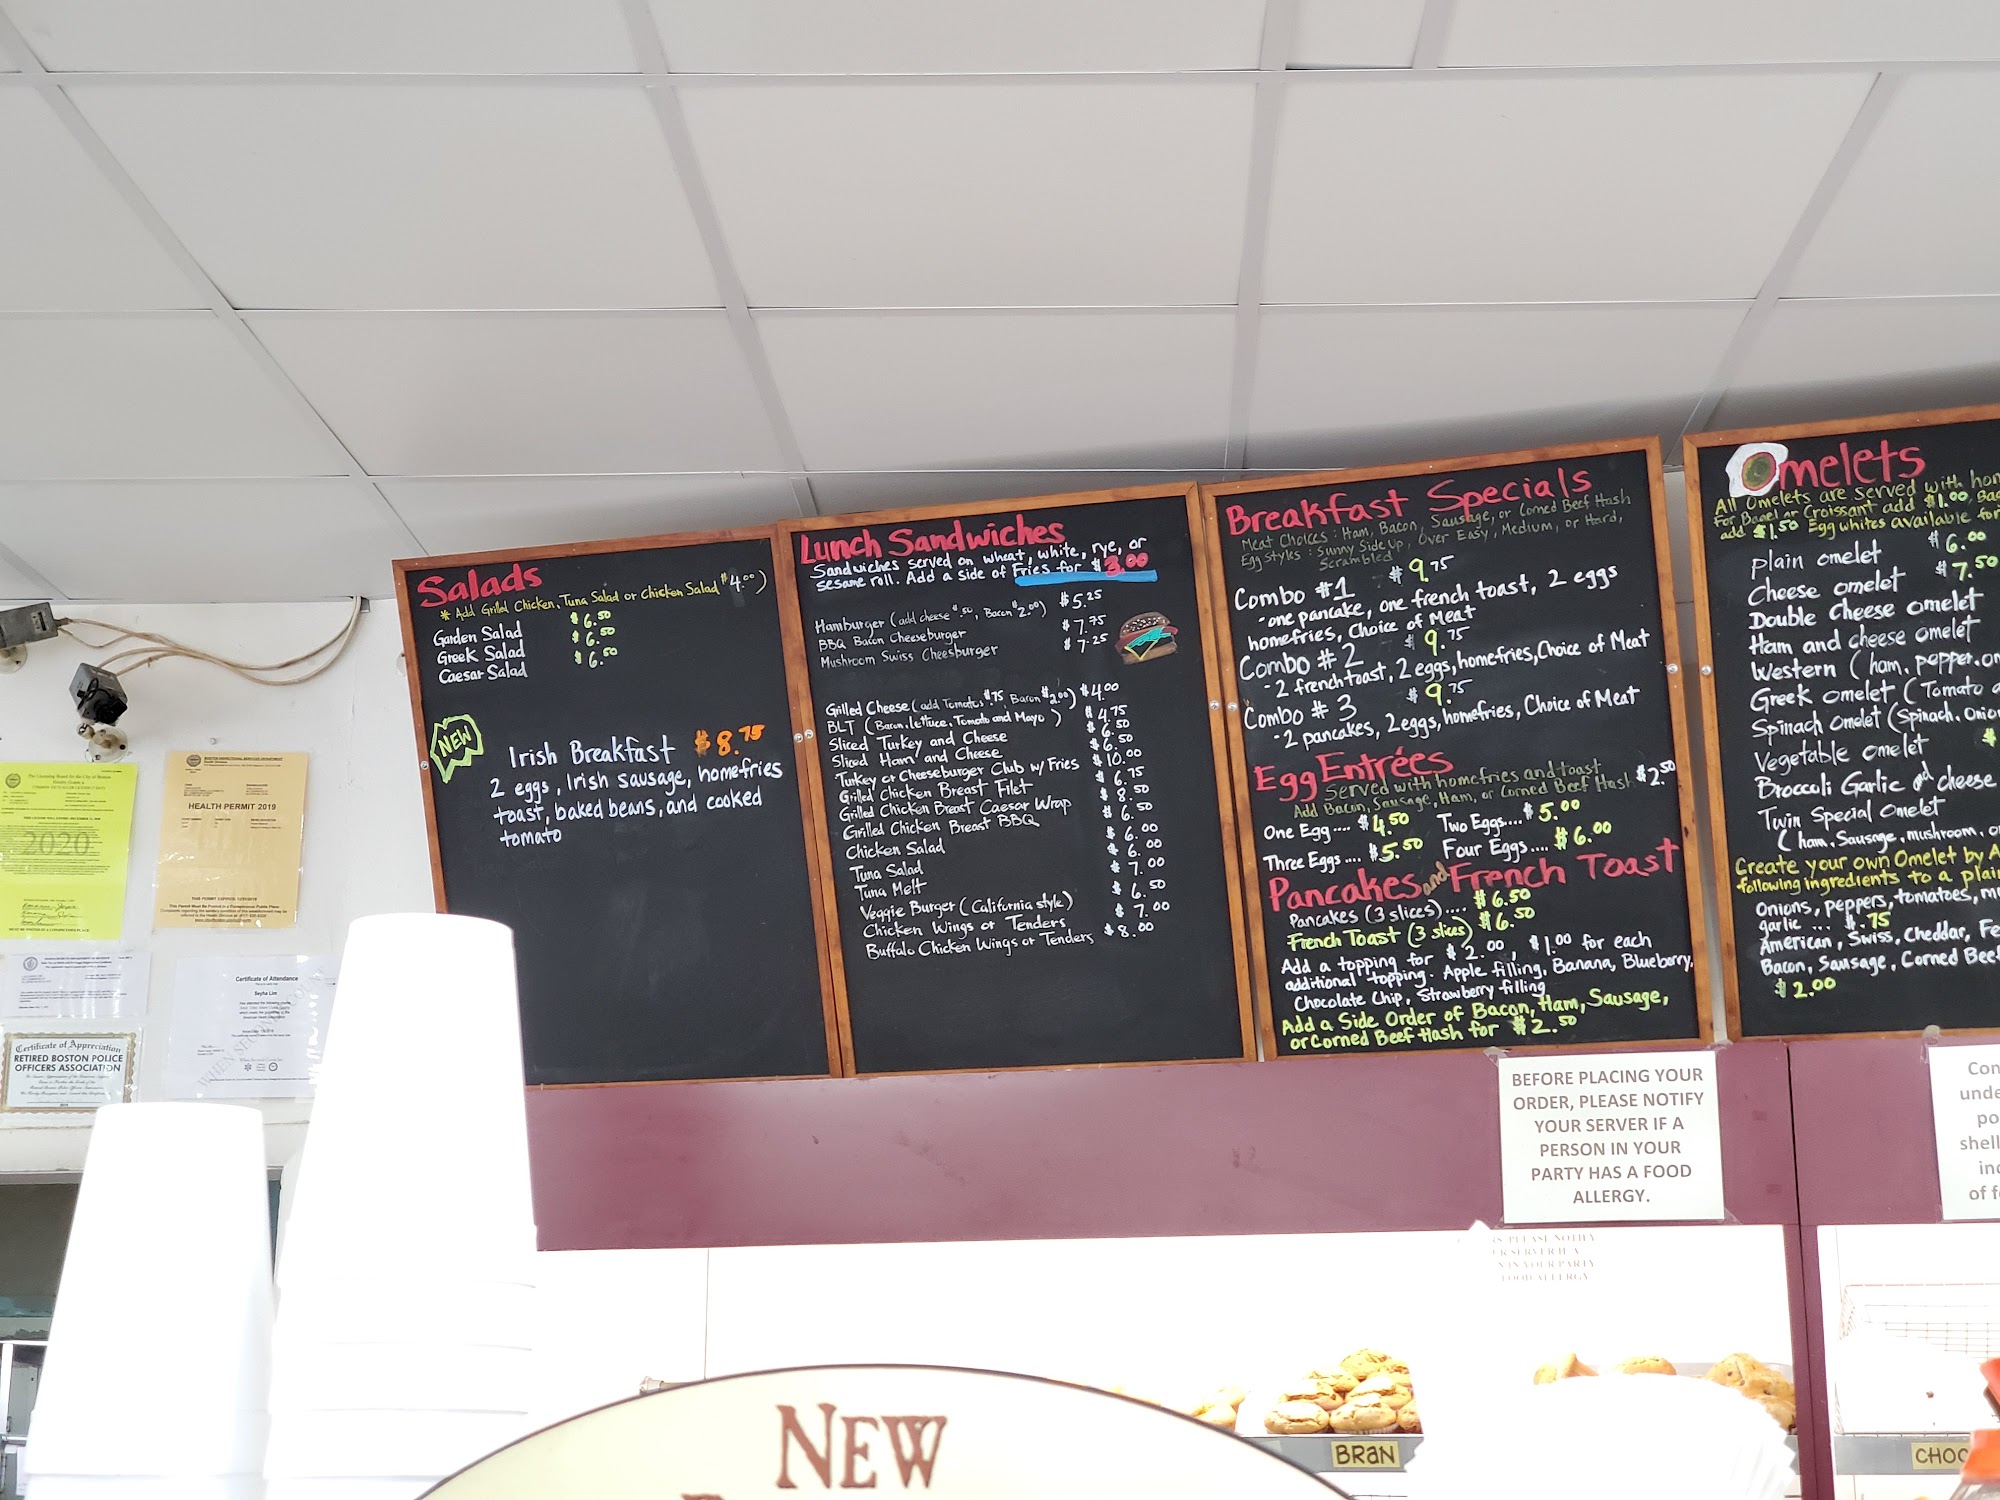 Salads
* Add Grilled Chicken, Tuna Salad or Chicken Salad $4.00)
Garden Salad $6.50
Greek Salad $6.50
Caesar Salad $6.50
NEW
Irish Breakfast $8.75
2 eggs, Irish sausage, homefries
toast, baked beans, and cooked
tomato
Lunch Sandwiches
Sandwiches served on wheat, white, rye, or
sesame roll. Add a side of Fries for $3.00
Hamburger (add cheese $.50, Bacon $2.00) $5.25
BBQ Bacon Cheeseburger $7.75
Mushroom Swiss Cheesburger $7.25
Grilled Cheese (add Tomatoes $.75, Bacon $2.00) $4.00
BLT (Bacon, lettuce, Tomato and Mayo) $4.75
Sliced Turkey and Cheese $6.50
Sliced Ham and Cheese $6.50
Turkey or Cheeseburger Club w/ Fries $10.00
Grilled Chicken Breast Filet $6.75
Grilled Chicken Breast Caesar Wrap $8.50
Grilled Chicken Breast BBQ $6.50
Chicken Salad $6.00
Tuna Salad $6.00
Tuna Melt $7.00
Veggie Burger (California style) $6.50
Chicken Wings or Tenders $7.00
Buffalo Chicken Wings or Tenders $8.00
Breakfast Specials
Meat Choices: Ham, Bacon, Sausage, or Corned Beef Hash
Egg Styles: Sunny Side Up, Over Easy, Medium, or Hard,
Scrambled
Combo #1 $9.75
-one pancake, one french toast, 2 eggs
homefries, Choice of Meat
Combo #2 $9.75
-2 french toast, 2 eggs, homefries, Choice of Meat
Combo #3 $9.75
-2 pancakes, 2 eggs, homefries, Choice of Meat
Egg Entrées
Served with homefries and toast
Add Bacon, Sausage, Ham, or Corned Beef Hash $2.50
One Egg.... $4.50 Two Eggs.... $5.00
Three Eggs.... $5.50 Four Eggs.... $6.00
Pancakes and French Toast
Pancakes (3 slices).... $6.50
French Toast (3 slices) $6.50
Add a topping for $2.00, $1.00 for each
additional topping. Apple filling, Banana, Blueberry,
Chocolate Chip, Strawberry filling
Add a Side Order of Bacon, Ham, Sausage,
or Corned Beef Hash for $2.50
Omelets
All Omelets are served with hom
For Bagel or Croissant add $1.00, Bag
add $1.50 Egg whites available for
plain omelet $6.00
Cheese omelet $7.50
Double Cheese omelet
Ham and cheese omelet
Western (ham, pepper, on
Greek omelet (Tomato a
Spinach omelet (Spinach, Onion
Vegetable omelet $
Broccoli Garlic and cheese
Twin Special Omelet
(ham, Sausage, mushroom, o
Create your own Omelet by A
following ingredients to a plain
Onions, peppers, tomatoes, mu
garlic ... $.75
American, Swiss, Cheddar, Fe
Bacon, Sausage, Corned Beef
$2.00
2020
HEALTH PERMIT 2019
Certificate of Attendance
Seyha Lim
Certificate of Appreciation
RETIRED BOSTON POLICE
OFFICERS ASSOCIATION
BEFORE PLACING YOUR
ORDER, PLEASE NOTIFY
YOUR SERVER IF A
PERSON IN YOUR
PARTY HAS A FOOD
ALLERGY.
Con
unde
po
shell
inc
of f
NEW
BRAN
CHOC